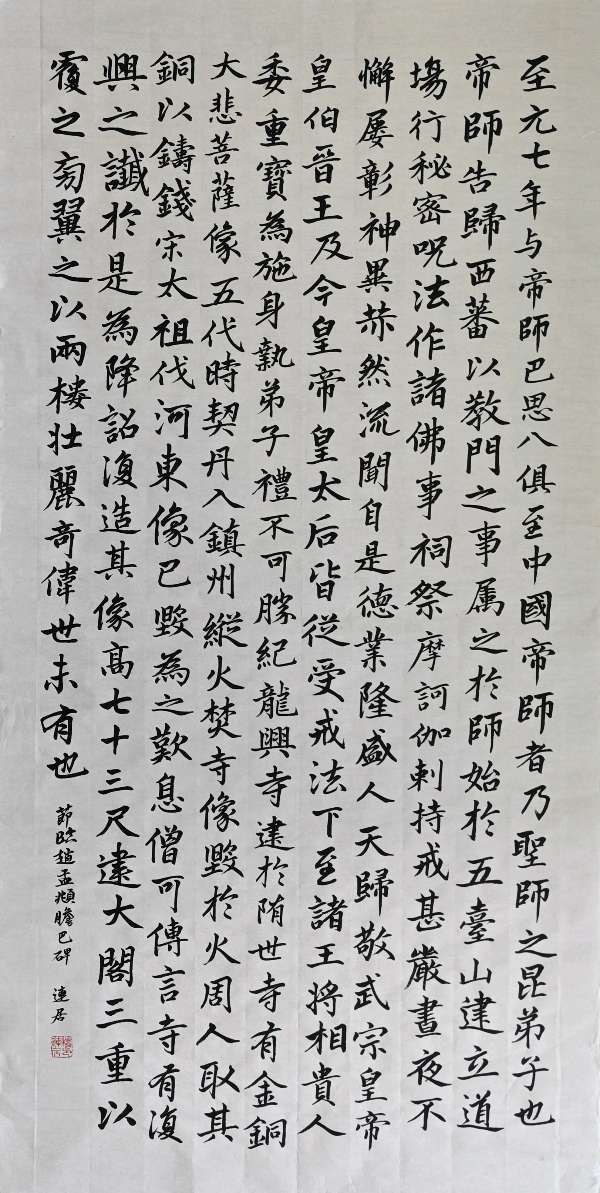 至元七年与帝師巴思八俱至中國帝師者乃聖師之昆弟子也
帝師告歸西蕃以教門之事属之於師始於五臺山建立道
場行秘密呪法作諸佛事祠祭摩訶伽剌持戒甚嚴晝夜不
懈屡彰神異赫然流聞自是德業隆盛人天歸敬武宗皇帝
皇伯晉王及今皇帝皇太后皆從受戒法下至諸王將相貴人
委重寶為施身執弟子禮不可勝紀龍興寺建於随世寺有金銅
大悲菩薩像五代時契丹入鎮州縱火焚寺像毀於火周人取其
銅以鑄錢宋太祖伐河東像已毀為之歎息僧可傳言寺有復
興之讖於是為降詔復造其像高七十三尺建大閣三重以
覆之旁翼之以兩楼壯麗奇偉世未有也
節臨趙孟頫膽巴碑 連居